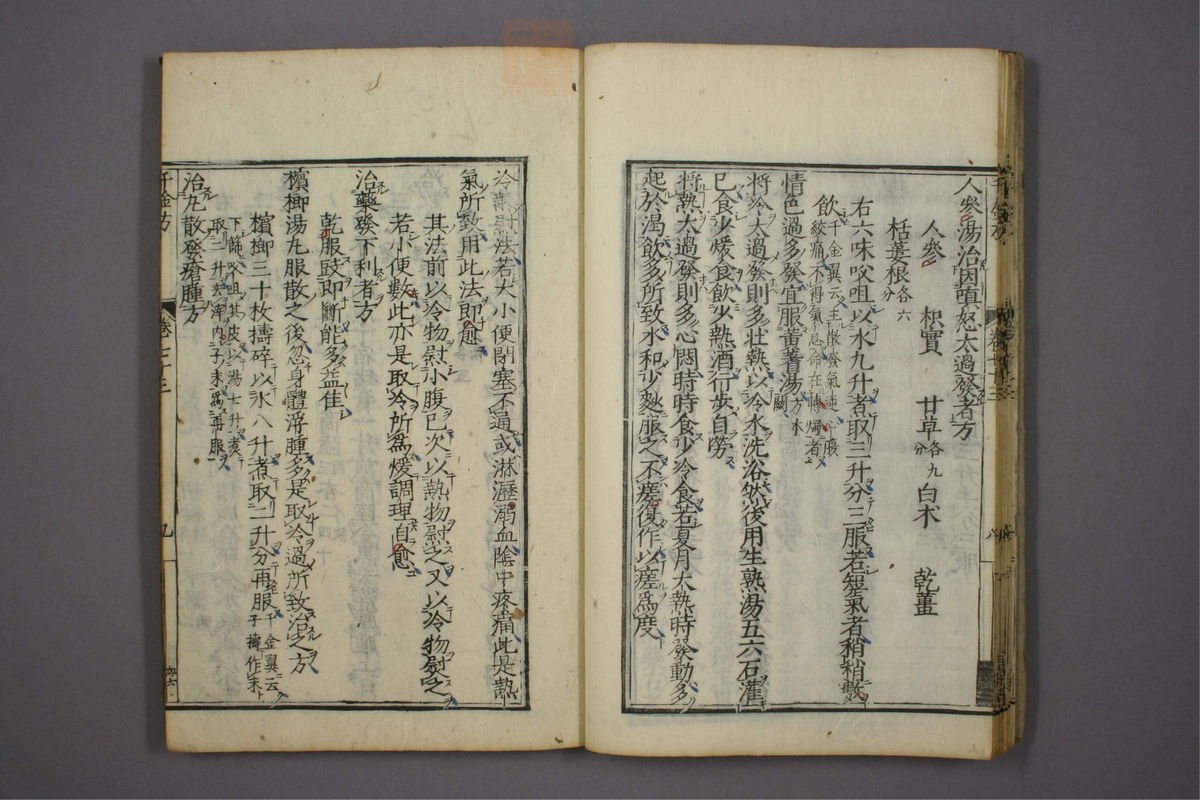 人參湯治因嗔怒太過發者方
人參 枳實 甘草各九分 白术 乾薑
栝蔞根各六分
右六味㕮咀以水九升煮取三升分三服若短氣者稍稍數
飲千金翼云主散發氣逆心腹絞痛不得氣息命在轉燭者
情色過多發宜服黃蓍湯方本闕
將冷太過發則多壯熱以冷水洗浴然後用生熱湯五六石灌
已食少煖食飲少熱酒行步自勞
將熱太過發則多心悶時時食少冷食若夏月大熱時發動多
起於渴飲多所致水和少麨服之不瘥復作以瘥爲度
冷熱熨法若大小便閉塞不通或淋瀝溺血陰中疼痛此是熱
氣所致用此法即愈
其法前以冷物熨小腹已次以熱物熨之又以冷物熨之
若小便數此亦是取冷所爲煖調理自愈
治藥發下利者方
乾服豉即斷能多益佳
檳榔湯九服散之後忽身體浮腫多是取冷過所致治之方
檳榔三十枚擣碎以水八升煮取二升分再服千金翼云子擣作末
下篩㕮咀其皮以湯七升煮取二升去滓内子末爲再服
治九散發瘡腫方
千金方 卷二十三 九